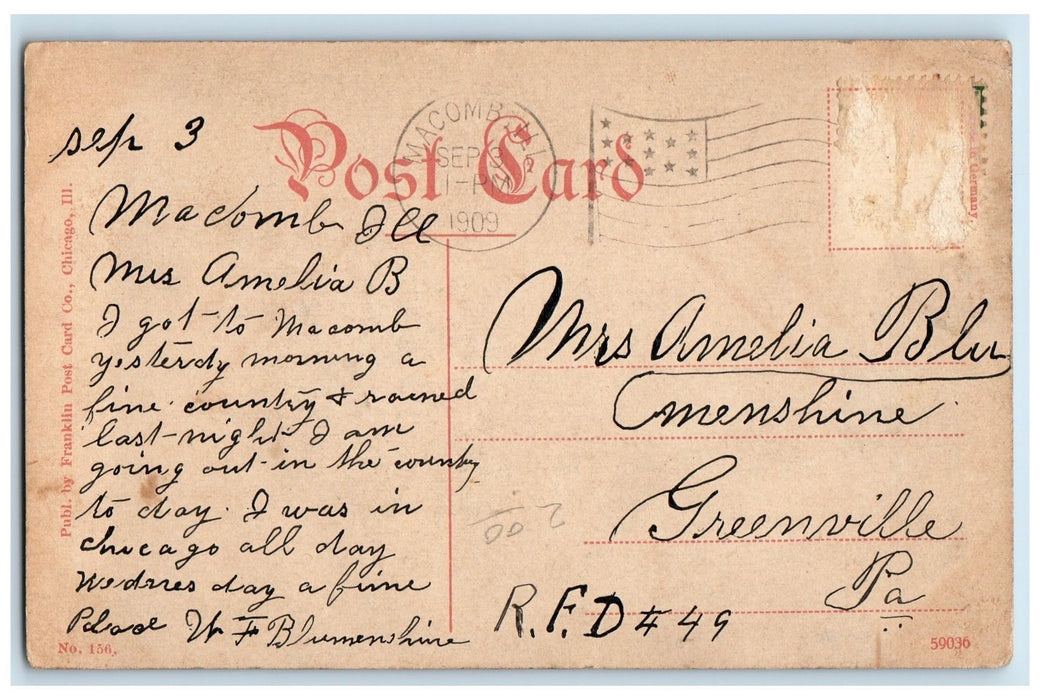 Post Card
MACOMB, ILL.
SEP 3
1-PM
1909
Germany.
Publ. by Franklin Post Card Co., Chicago, Ill.
sep 3
Macomb Ill
Mrs Amelia B
I got to Macomb
yesterdy morning a
fine country & rained
last night I am
going out in the country
to day. I was in
chicago all day
Wednes day a fine
W F Blumenshine
Mrs Amelia Blu
menshine
Greenville
Pa
R.F.D # 49
2 00
No. 156.
59036